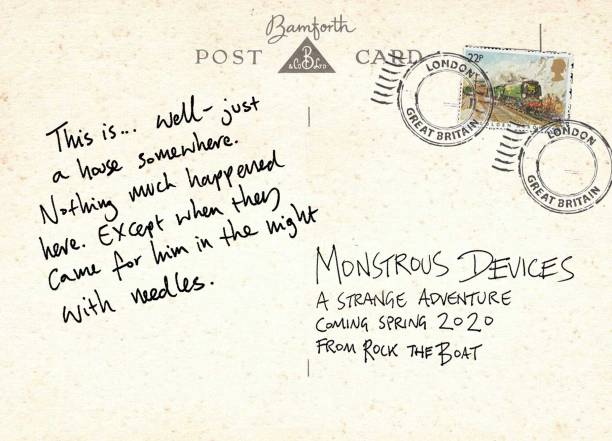 Bamforth
POST CARD
B
& Co Ltd
22P
LONDON
GREAT BRITAIN
LONDON
GREAT BRITAIN
This is... well - just
a house somewhere.
Nothing much happened
here. Except when they
came for him in the night
with needles.
MONSTROUS DEVICES
A STRANGE ADVENTURE
COMING SPRING 2020
FROM ROCK THE BOAT